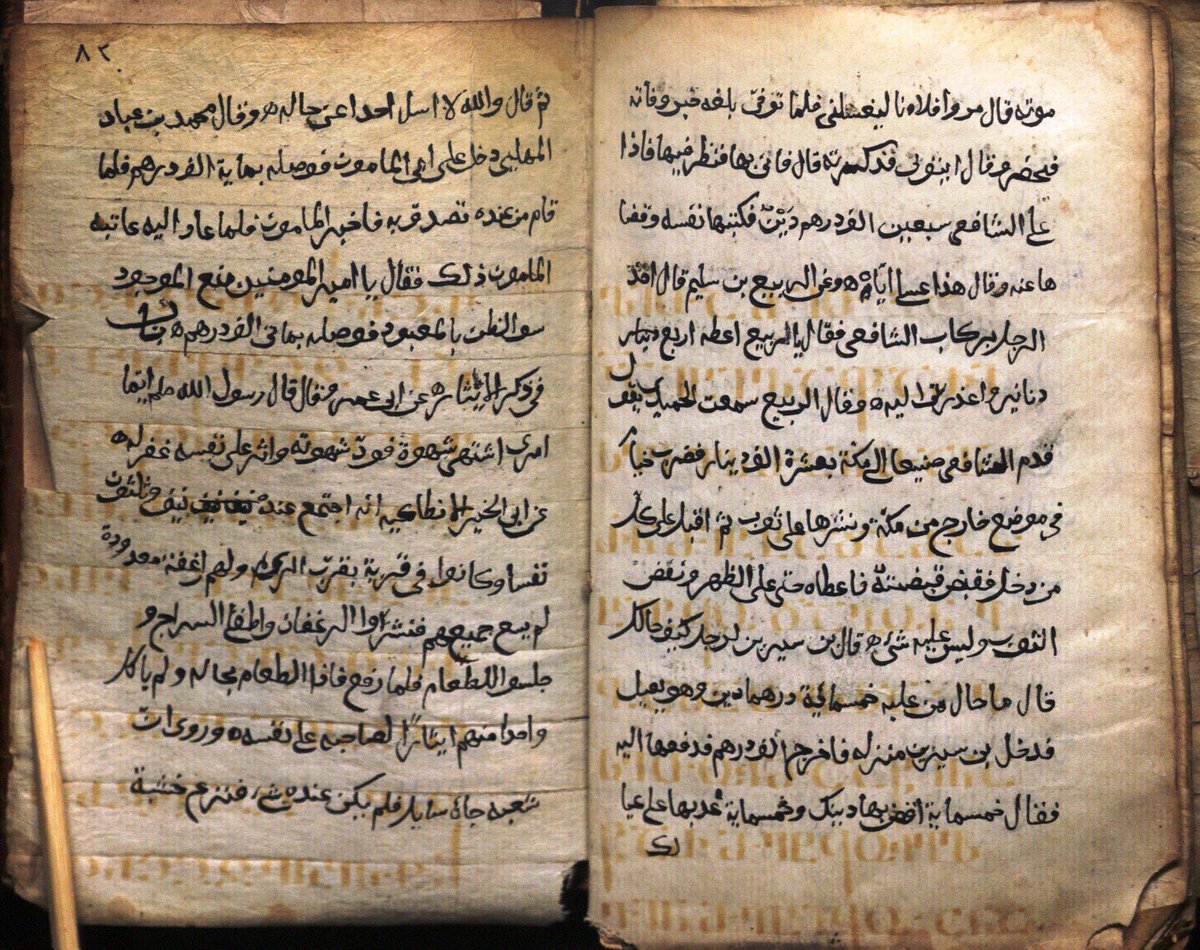 موته قال مروا فلانا ليغسلنى فلما توفى بلغه خبر وفاته
فحضر وقال ايتونى تذكرته قال فاتى بها فنظر فيها فاذا
على الشافعى سبعين الف درهم دين فكتبها نفسه وقضا
ها عنه وقال هذا غسلى اياه ه وعن الربيع بن سليم قال اخذ
الرجل بركاب الشافعى فقال يا ربيع اعطه اربع
دنانير واعذرنى اليه ه وقال الربيع سمعت الحميدى يقول
قدم الشافعى صنعا الى مكة بعشرة الف دينار فضرب خباه
فى موضع خارج من مكة ونثرها على ثوب ثم اقبل على كل
من دخل فقبض قبضته فاعطاه حتى على الظهر ونفض
الثوب وليس عليه شئ ه قال بن سيرين لرجل كيف حالك
قال ما حال من عليه خمسماية درهما دين وهو يعيل
فدخل بن سيرين منزله فاخرج الف درهم فدفعها اليه
فقال خمسماية اقض بها دينك وخمسماية عد بها على عيا
لك
٨٢
ثم قال والله لا اسل احدا عن حاله ه وقال محمد بن عباد
المهلبى دخل على ابى المامون فوصله بماية الف درهم فلما
قام من عنده تصدق به فاخبر المامون فلما عاد اليه عاتبه
المامون ذلك فقال يا امير المومنين منع الموجود
سو الظن بالمعبود فوصله بماتى الف درهم ه باب
فى ذكر الايثار ه عن ابى عمر قال قال رسول الله صلم ايما
امرى اشتهى شهوة فرد شهوته واثر على نفسه غفر له ه
عن ابى الخير الانطاكيه انه اجتمع عنده نيف وثلثون
نفسا وكانوا فى قرية بقرب الرى ولهم ارغفة معدودة
لم يسع جميعهم فنشروا الرغفان واطفئ السراج و
جلسوا للطعام فلما رفع فاذا الطعام بحاله ولم ياكل
واحدا منهم ايثارا لصاحبه على نفسه ه وروى ان
شعبه جاه سايل فلم يكن عنده شئ فنزع خشبة